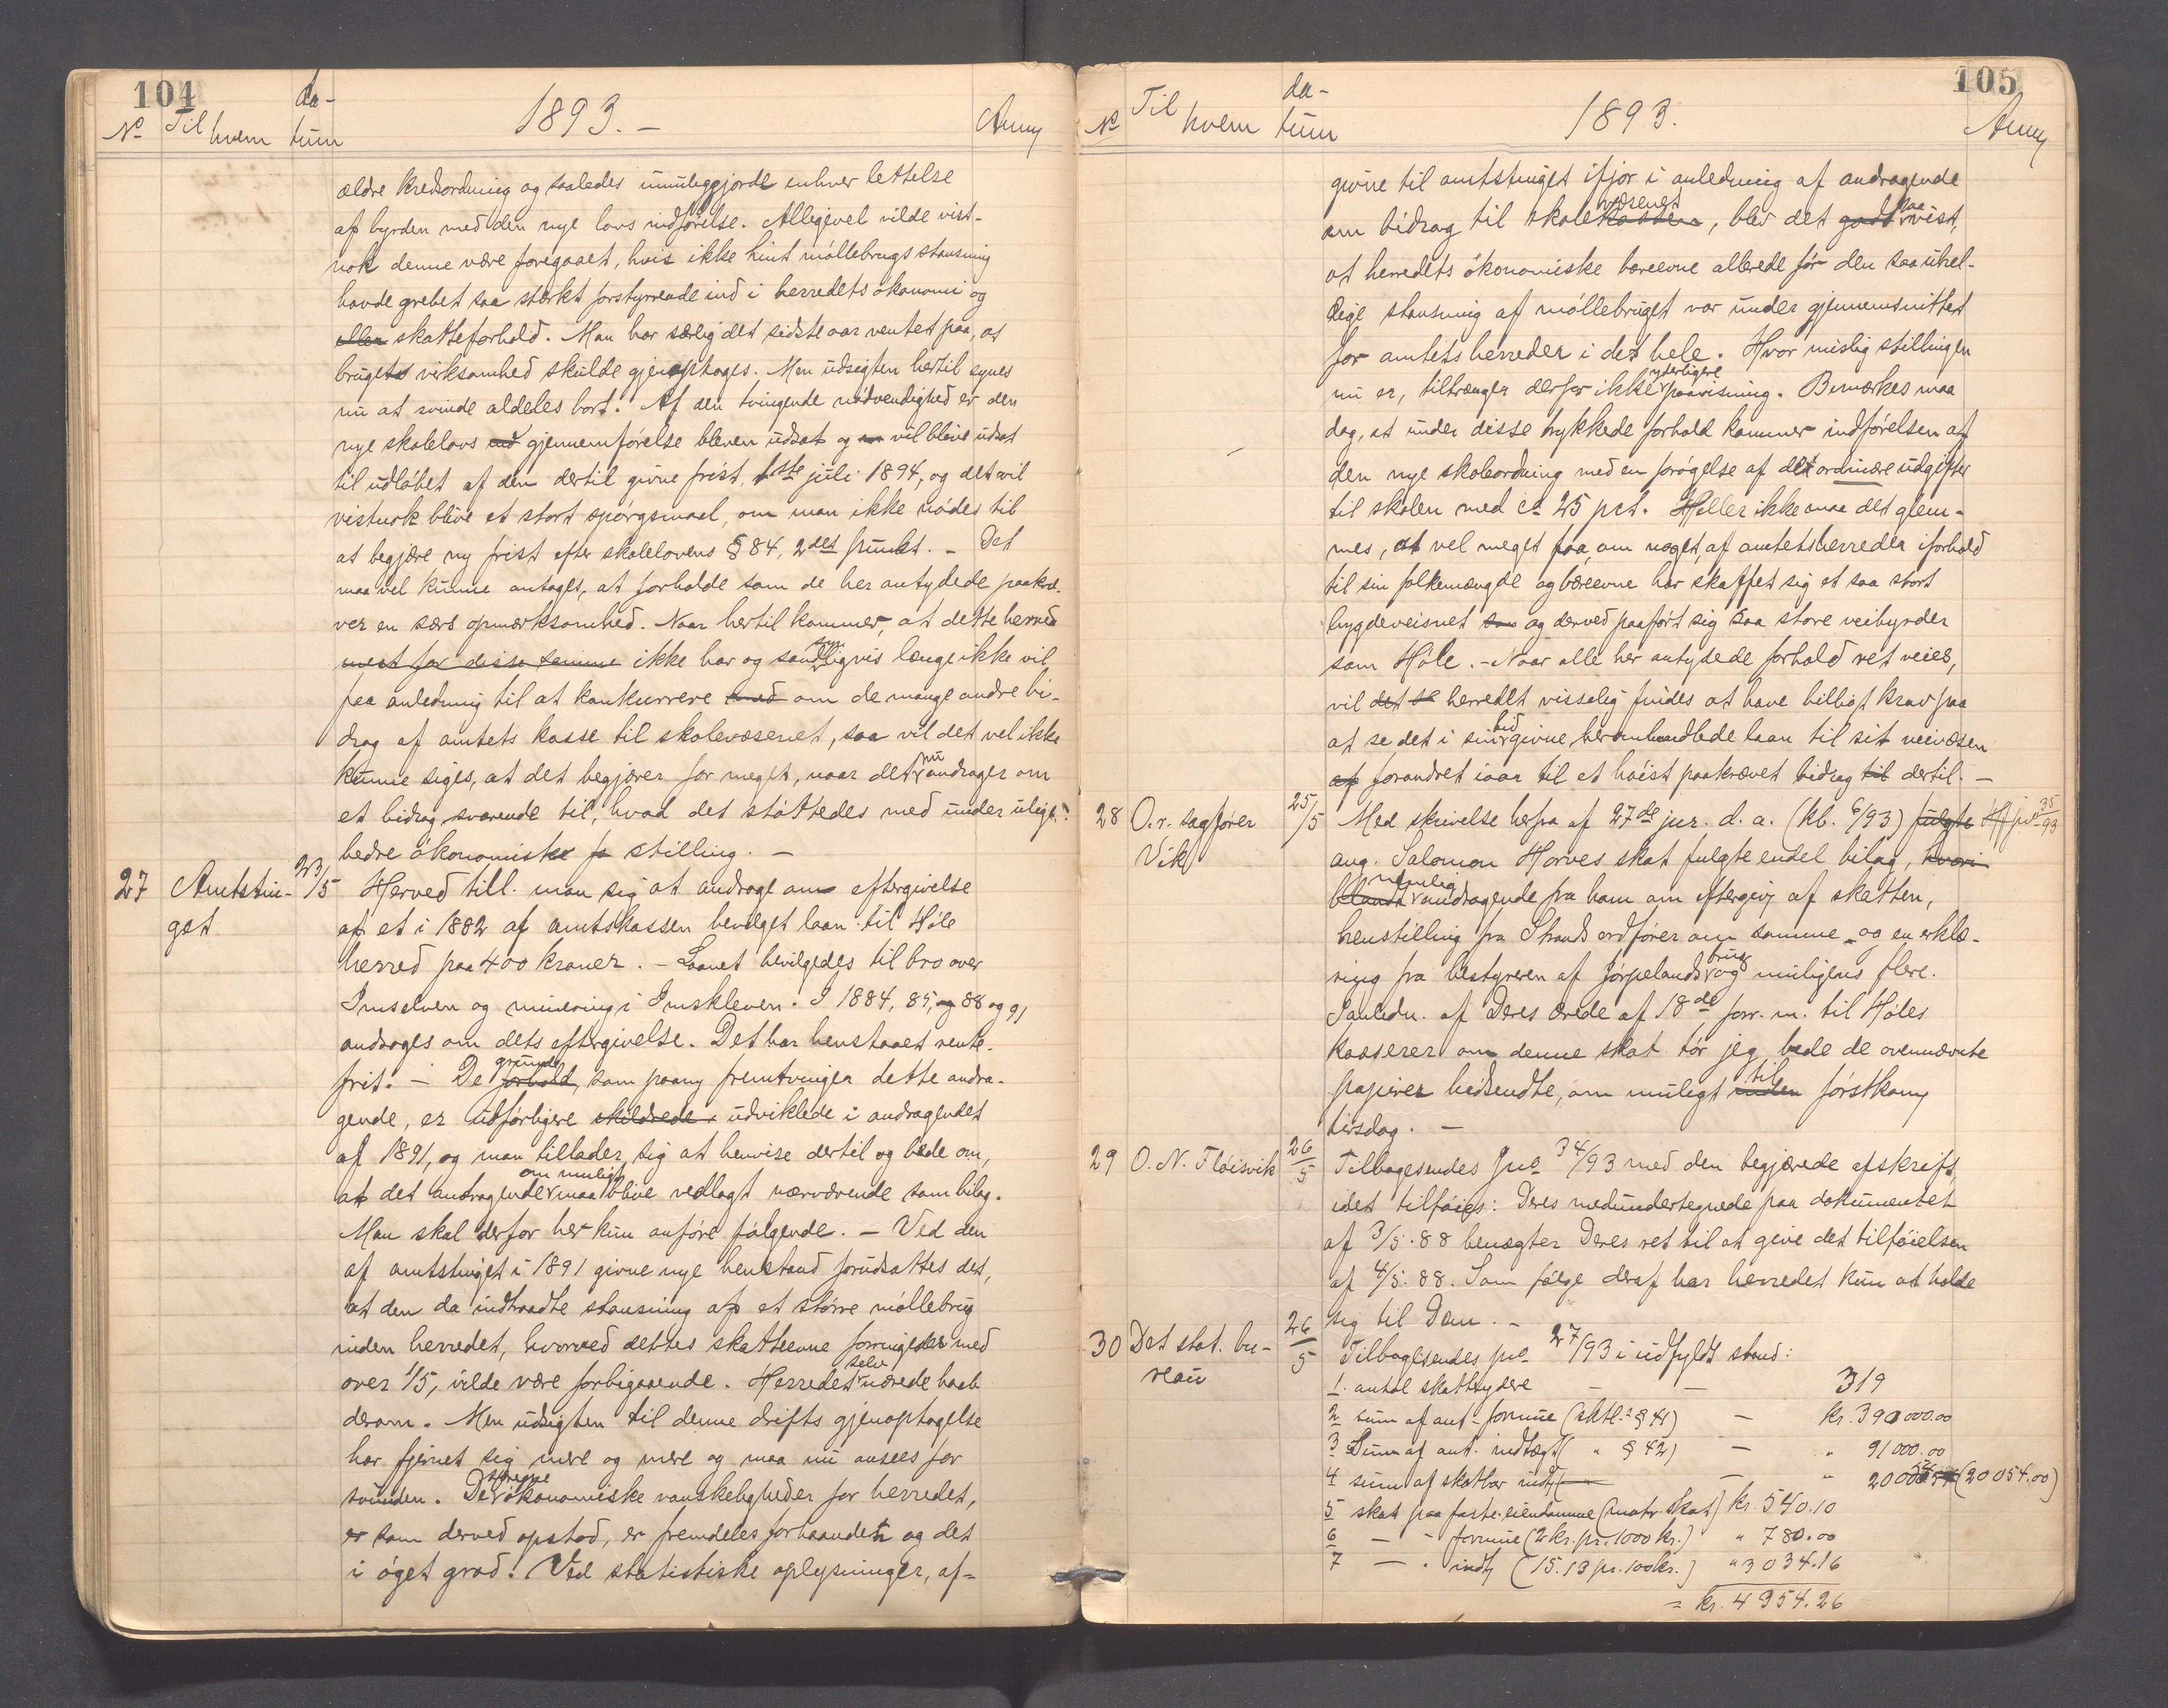 104
No Til hvem da-tum 1893. – Anm
ældre kredsordning og saaledes umuliggjorde enhver lettelse
af byrden med den nye lovs indførelse. Alligevel vilde vist-
nok denne være foregaaet, hvis ikke hint møllebrugs stansning
havde grebet saa stærkt forstyrrende ind i herredets økonomi og
eller skatteforhold. Man har særlig det sidste aar ventet paa, at
brugets virksomhed skulde gjenoptages. Men udsigten hertil synes
nu at svinde aldeles bort. Af den tvingende nødvendighed er den
nye skolelovs ind gjennemførelse bleven udsat og vil blive udsat
til udløbet af den dertil givne frist, 1ste juli 1894, og det vil
vistnok blive et stort spørgsmaal, om man ikke nødes til
at begjære ny frist efter skolelovens § 84, 2det punkt. – Det
maa vel kunne antages, at forholde som de her antydede paakræ-
ver en særs opmærksomhed. Naar hertil kommer, at dette herred
mest for disse samme ikke har og sandsynligvis længe ikke vil
faa anledning til at konkurrere med om de mange andre bi-
drag af amtets kasse til skolevæsenet, saa vil det vel ikke
kunne siges, at det begjærer for meget, naar det nu andrager om
et bidrag svarende til, hvad det støttedes med under ulige
bedre økonomiske fo stilling. –
27 Amtstin- 23/5 Herved till. man sig at andrage om eftergivelse
get af et i 1882 af amtskassen bevilget laan til Høle
herred paa 400 kroner. – Laanet bevilgedes til bro over
Imselven og minering i Imskleven. I 1884, 85, og 88 og 91
androges om dets eftergivelse. Det har henstaaet rente-
frit. – De forhold grunde, som paany fremtvinger dette andra-
gende, er udførligere skildrede udviklede i andragendet
af 1891, og man tillader sig at henvise dertil og bede om,
at det andragende om muligt maa blive vedlagt nærværende som bilag.
Man skal derfor her kun anføre følgende. – Ved den
af amtstinget i 1891 givne nye henstand forudsattes det,
at den da indtraadte stansning af et større møllebrug
inden herredet, hvorved dettes skatteevne forringedes med
over 1/5, vilde være forbigaaende. Herredet selv nærede haab
derom. Men udsigten til denne drifts gjenoptagelse
har fjernet sig mere og mere og maa nu ansees for
svunden. De større økonomiske vanskeligheder for herredet,
er som derved opstod, er fremdeles forhaanden og det
i øget grad. Ved statistiske oplysninger, af-
105
No Til hvem da-tum 1893. Anm
givne til amtstinget ifjor i anledning af andragende
om bidrag til skolekassen væsenet, blev det godt paavist,
at herredets økonomiske bæreevne allerede før den saa uhel-
dige stansning af møllebruget var under gjennemsnittet
for amtets herreder i det hele. Hvor mislig stillingen
nu er, tiltrænger derfor ikke yderligere paavisning. Bemærkes maa
dog, at under disse trykkede forhold kommer indførelsen af
den nye skoleordning med en forøgelse af det ordinære udgifter
til skolen med ca 25 pct. Heller ikke maa det glem-
mes, at vel meget faa, om noget, af amtets herreder iforhold
til sin folkemængde og bæreevne har skaffet sig et saa stort
bygdeveisnet som og derved paaført sig saa store veibyrder
som Høle. – Naar alle her antydede forhold ret veies,
vil det se herredet visselig findes at have billigt krav paa
at se det i sin tid givne, heromhandlede laan til sit veivæsen
af forandret iaar til et høist paakrævet bidrag til dertil. –
28 O.r. sagfører 25/5 Med skrivelse herfra af 27de jnr. d. a. (kb. 6/93) fulgte Hf jno 35/93
Vik ang. Salomon Horves skat fulgte endel bilag, hvori
blandt nemlig andragende fra ham om eftergiv. af skatten,
henstilling fra Strands ordfører om samme – og en erklæ-
ring fra bestyreren af Jørpelands brug og muligens flere.
Ianledn. af Deres ærede af 18de forr. m. til Høles
kasserer om denne skat tør jeg bede de ovennævnte
papirer hidsendte, om muligt inden til førstkom
tirsdag. –
29 O. N. Fløisvik 26/5 Tilbagesendes jno 34/93 med den begjærede afskrift,
idet tilføies: Deres medundertegnede paa dokumentet
af 3/5.88 benægter Deres ret til at give det tilføielsen
af 4/5.88. Som følge deraf har herredet kun at holde
sig til Dem. –
30 Det stat. bu- 26/5 Tilbagesendes jno 27/93 i udfyldt stand:
reau 1. antal skatteydere – – 319
2 sum af ant. formue (sktl. § 41) – kr. 390000.00
3 Sum af ant. indtægt ( " § 42) – " 91000.00
4 sum af skatbar indt – " (20054.00)
5 skat paa faste eiendomme (matr. skat) kr. 540.10
6 – " formue (2 kr. pr. 1000 kr.) " 780.00
7 – " indt (15.13 pr. 100 kr.) " 3034.16
= kr. 4354.26